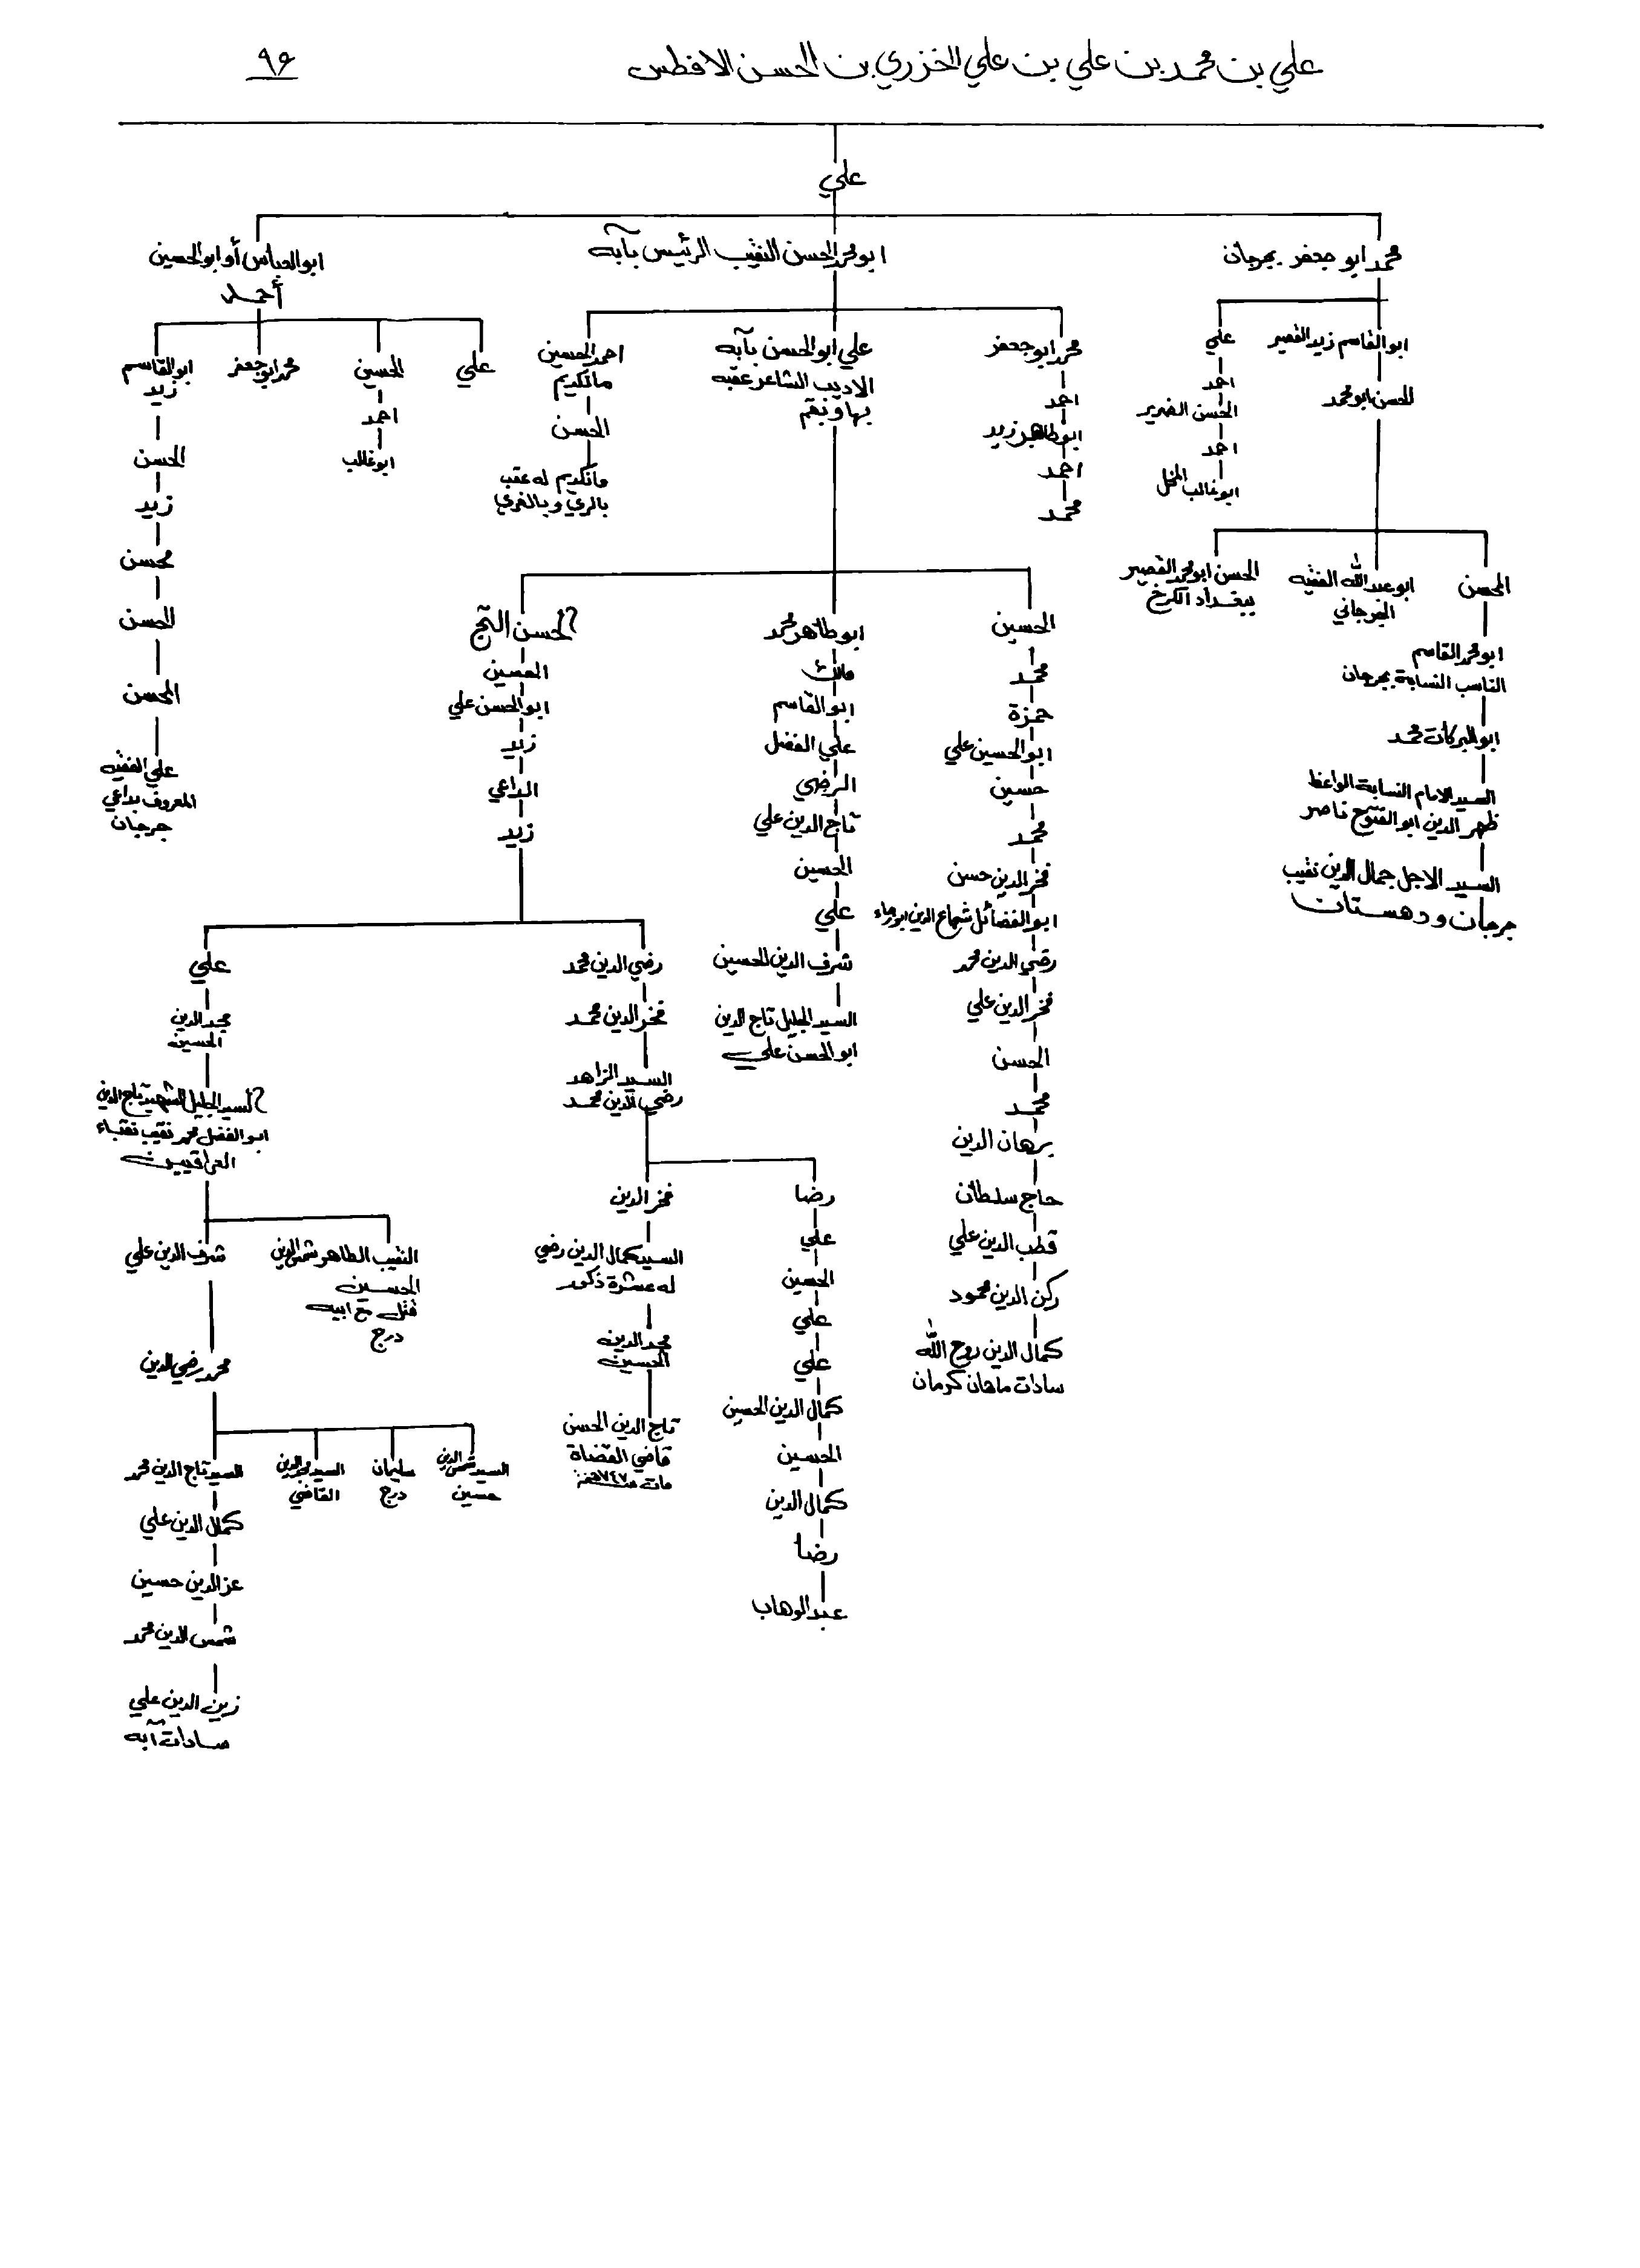 علي بن محمد بن علي بن علي الخزري بن الحسن الافطس
٩۶
علي
محمد ابو جعفر بجرجان
ابو محمد الحسن النقيب الرئيس بآبه
ابو العباس أو ابو الحسين
أحمد
ابو القاسم زيد القصير
الحسن ابو محمد
علي
احمد
الحسن الضرير
احمد
ابو غالب
المحسن
ابو محمد القاسم
الناسب النسابة بجرجان
ابو البركات محمد
السيد الامام النسابة الواعظ
ظهر الدين ابو الفتوح ناصر
السيد الاجل جمال الدين نقيب
جرجان ودهستان
ابو عبد الله الفقيه
الجرجاني
الحسن ابو محمد القصير
ببغداد الكرخ
محمد ابو جعفر
احمد
ابو طاهر زيد
احمد
محمد
علي ابو الحسن بآبه
الاديب الشاعر عقبه
بها وبقم
احمد الحسين
مانكديم
الحسن
مانكديم له عقب
بالري وبالغري
الحسين
محمد
حمزة
ابو الحسين علي
حسين
محمد
فخر الدين حسن
ابو الفضائل شجاع الدين
رضي الدين محمد
فخر الدين علي
الحسن
محمد
برهان الدين
حاج سلطان
قطب الدين علي
ركن الدين محمود
كمال الدين روح الله
سادات ماهان كرمان
ابو طاهر محمد
ابو القاسم
علي الفضل
الرضي
تاج الدين علي
الحسين
علي
شرف الدين الحسين
السيد الجليل تاج الدين
ابو الحسن علي
الحسن التج
الحسين
ابو الحسن علي
زيد
الداعي
زيد
رضي الدين محمد
فخر الدين محمد
السيد الزاهد
رضي الدين محمد
رضا
علي
الحسين
علي
علي
كمال الدين الحسين
الحسين
كمال الدين
رضا
عبد الوهاب
فخر الدين
السيد كمال الدين رضي
له عشرة ذكور
مجد الدين
الحسين
تاج الدين الحسن
قاضي القضاة
مات سنة ٧٤٧
علي
مجد الدين
الحسين
السيد الجليل الشهيد تاج الدين
ابو الفضل محمد نقيب نقباء
العراقيين
النقيب الطاهر شمس الدين
الحسين
قتل مع ابيه
درج
شرف الدين علي
محمد رضي الدين
السيد شمس الدين
حسين
سليمان
درج
السيد مجد الدين
القاضي
السيد تاج الدين محمد
كمال الدين علي
عز الدين حسين
شمس الدين محمد
زين الدين علي
سادات آبه
علي
الحسين
احمد
ابو غالب
محمد ابو جعفر
ابو القاسم
زيد
الحسن
زيد
محسن
الحسن
المحسن
علي الفقيه
المعروف بداعي
جرجان